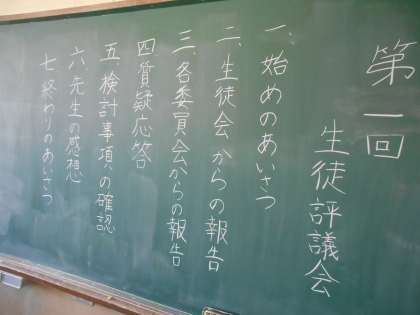 第一回
生徒評議会
一、始めのあいさつ
二、生徒会からの報告
三、各委員会からの報告
四、質疑応答
五、検討事項の確認
六、先生の感想
七、終わりのあいさつ